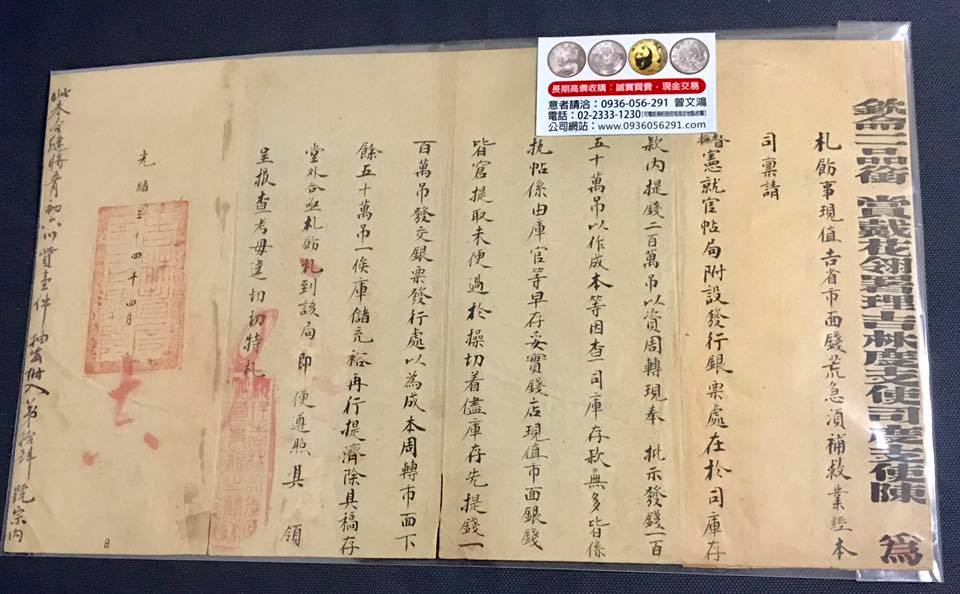 欽命二品銜賞戴花翎署理吉林度支使司度支使陳 為
札飭事現值吉省市面錢荒急須補救業經本
司稟請
督憲就官帖局附設發行銀票處在於司庫存
款內提錢二百萬吊以資周轉現奉 批示發錢一百
五十萬吊以作成本等因查司庫存款無多皆係
執帖係由庫官等早存妥實錢店現值市面銀錢
皆窘提取未便過於操切着儘庫存先提錢一
百萬吊發交銀票發行處以為成本周轉市面下
餘五十萬吊一俟庫儲充裕再行提濟除具稿存
堂外合亟札飭札到該局即便遵照具 領
呈報查考毋違切切特札
光緒三十四年四月 日
長期高價收購：誠實買賣，現金交易
意者請洽：0936-056-291 曾文鴻
電話：02-2333-1230
公司網站：www.0936056291.com